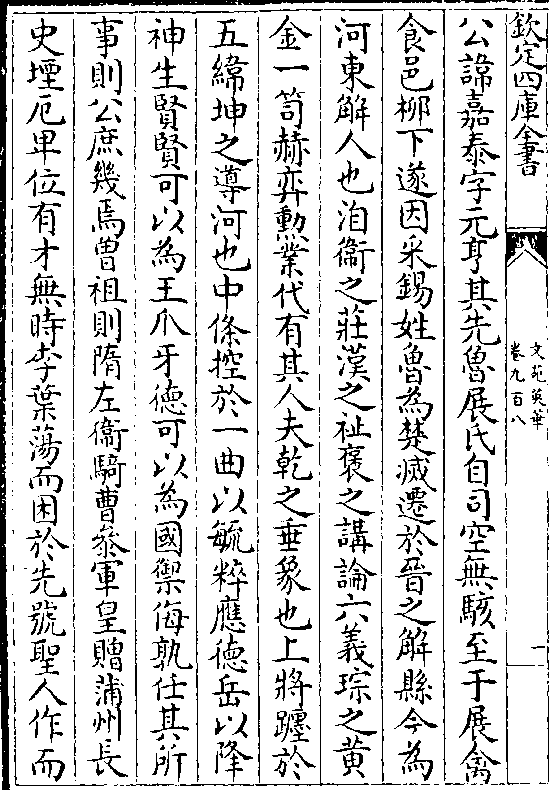 欽定四庫全書
文苑英華
卷九百八
一
公諱嘉泰字元亨其先魯展氏自司空無駭至于展禽
食邑柳下遂因采錫姓魯為楚滅遷於晉之解縣今為
河東解人也洎衞之莊漢之祉褒之講論六義琮之黄
金一笥赫弈勲業代有其人夫乾之垂象也上將躔於
五緯坤之導河也中條控於一曲以毓粹應德岳以降
神生賢賢可以為王爪牙德可以為國禦侮孰任其所
事則公庶幾焉曽祖則隋左衞騎曹叅軍皇贈蒲州長
史堙厄卑位有才無時季葉蕩而困於先號聖人作而